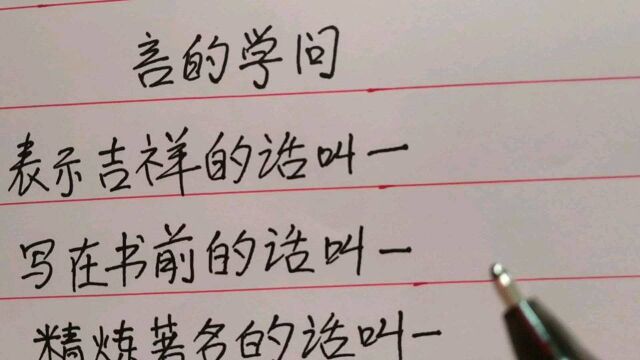 言的学问
表示吉祥的话叫一
写在书前的话叫一
精炼著名的话叫一